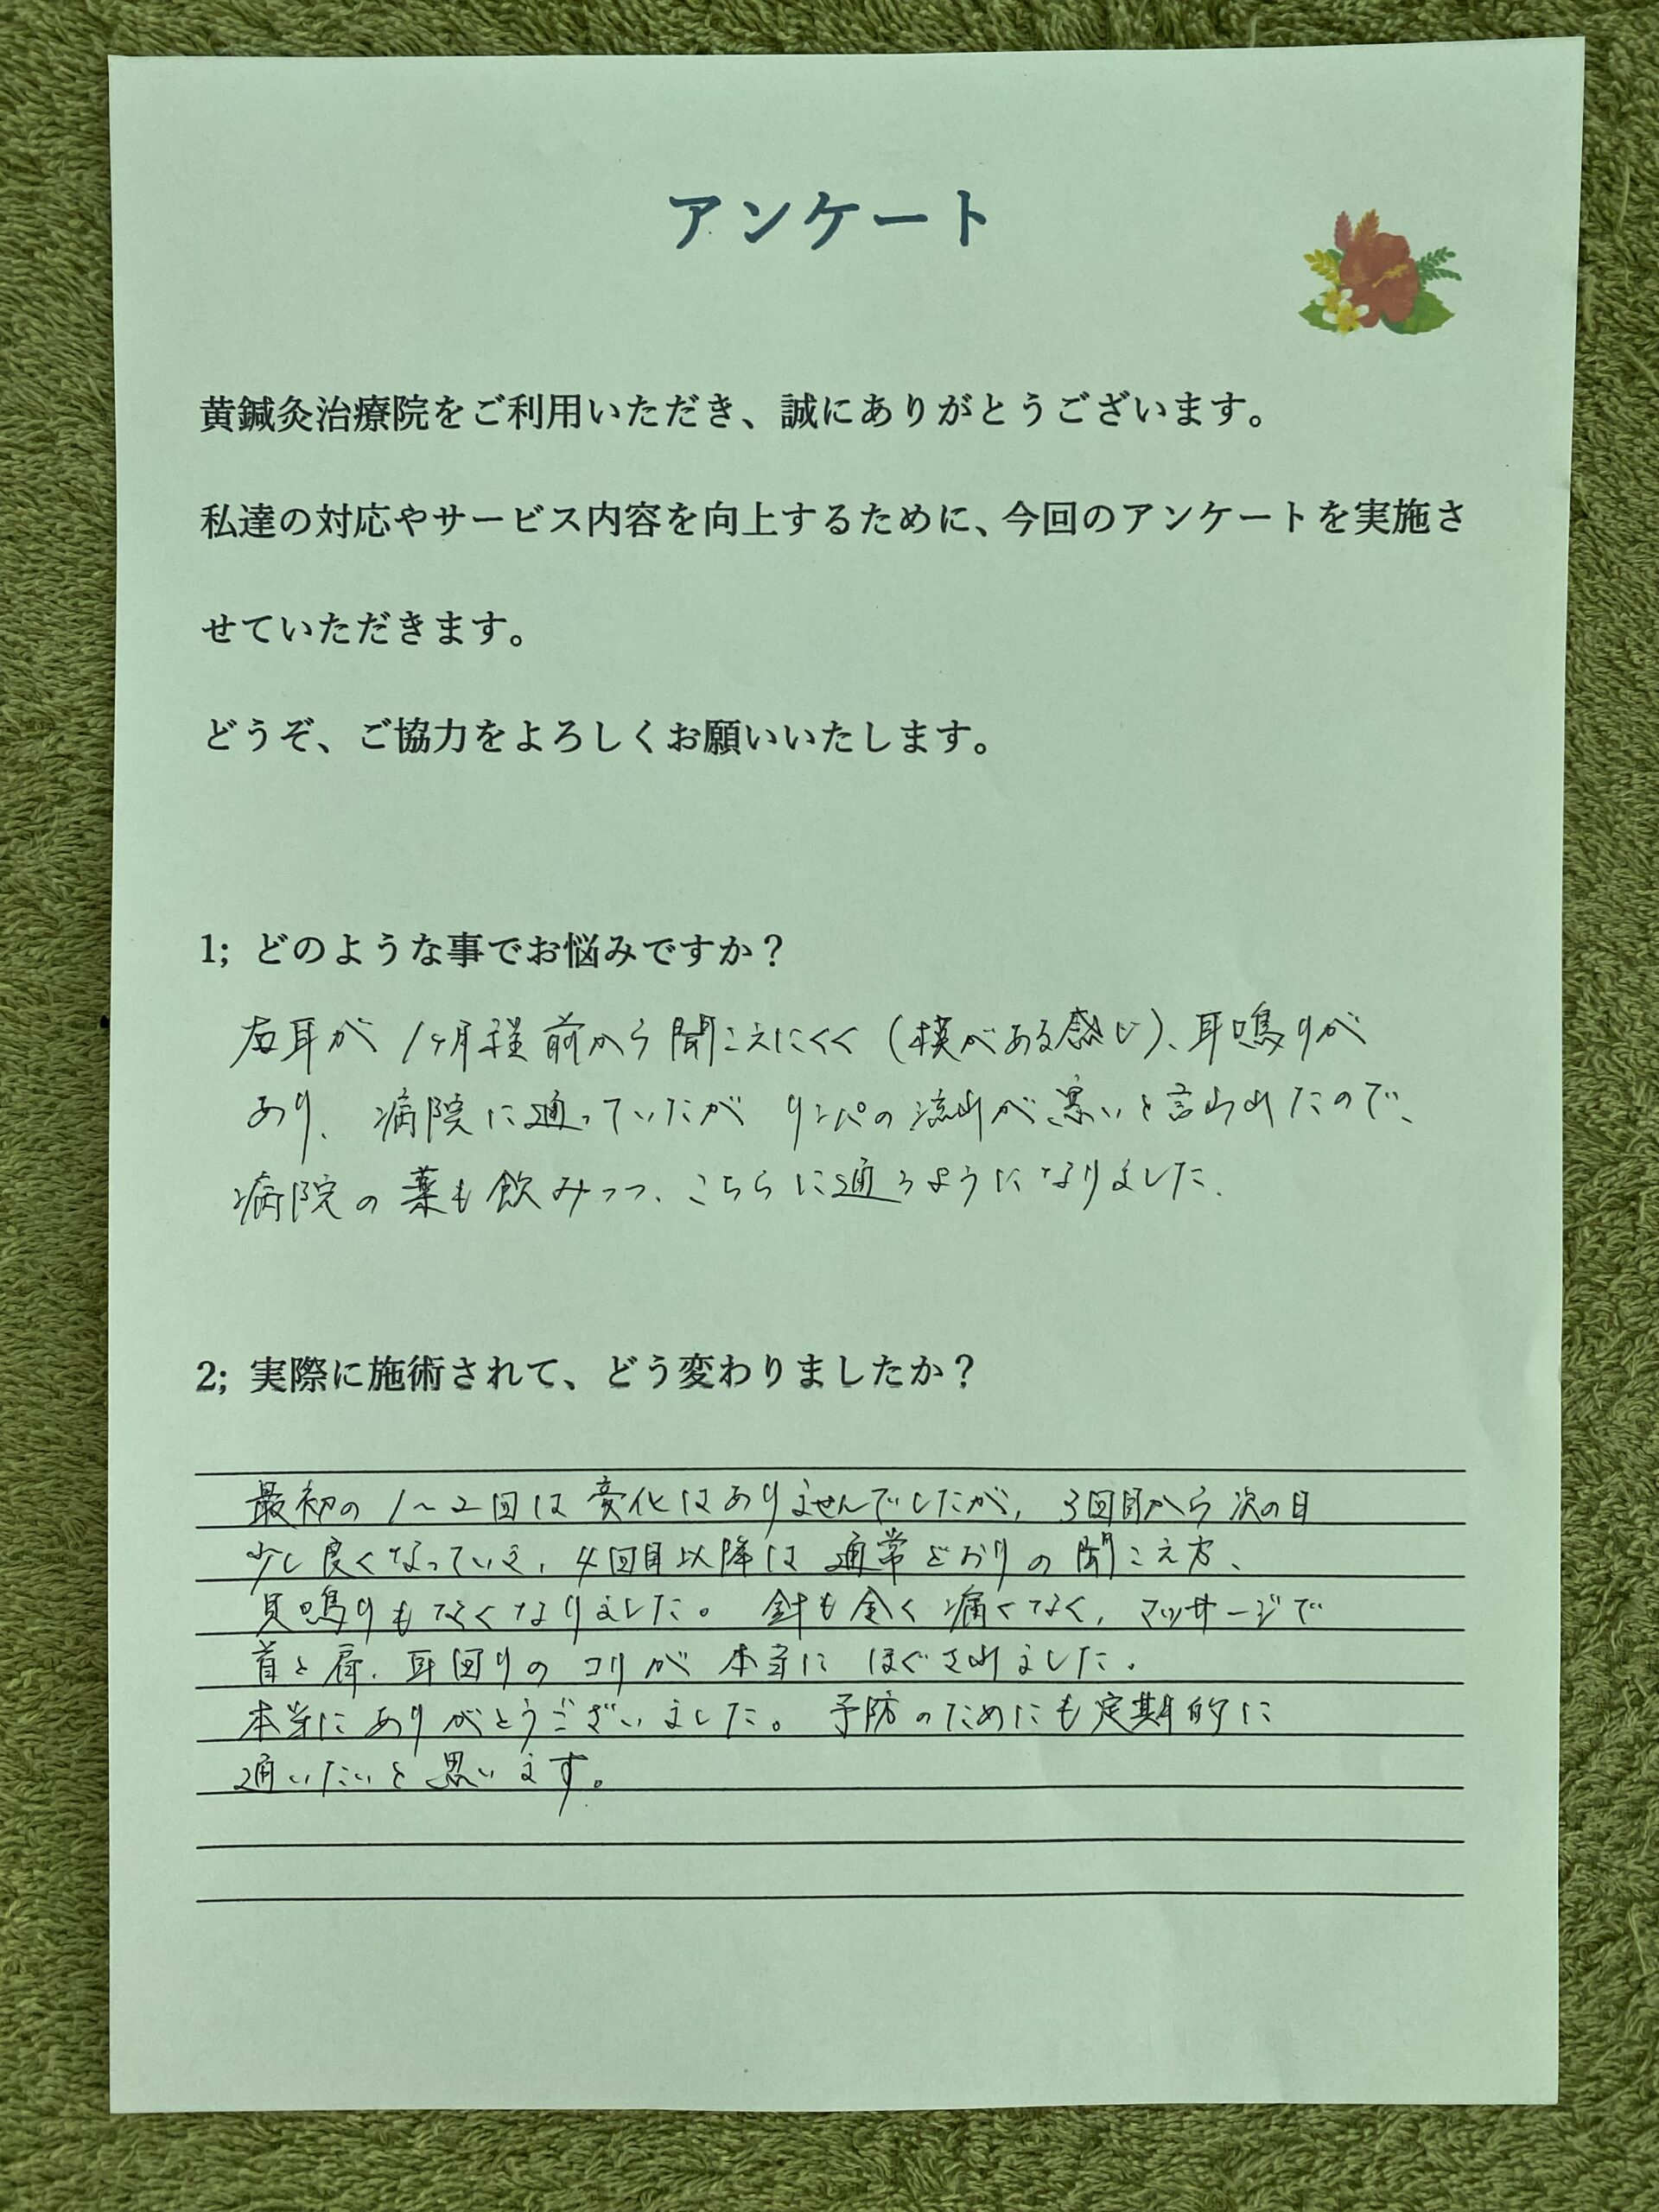 アンケート
黄鍼灸治療院をご利用いただき、誠にありがとうございます。
私達の対応やサービス内容を向上するために、今回のアンケートを実施さ
せていただきます。
どうぞ、ご協力をよろしくお願いいたします。
1; どのような事でお悩みですか？
右耳が1ヶ月程前から聞こえにくく(膜がある感じ)、耳鳴りが
あり、病院に通っていたがリンパの流れが悪いと言われたので、
病院の薬も飲みつつ、こちらに通うようになりました。
2; 実際に施術されて、どう変わりましたか？
最初の1～2回は変化はありませんでしたが、3回目から次の日
少し良くなっていき、4回目以降は通常どおりの聞こえ方、
耳鳴りもなくなりました。針も全く痛くなく、マッサージで
首と肩、耳回りのコリが本当にほぐされました。
本当にありがとうございました。予防のためにも定期的に
通いたいと思います。